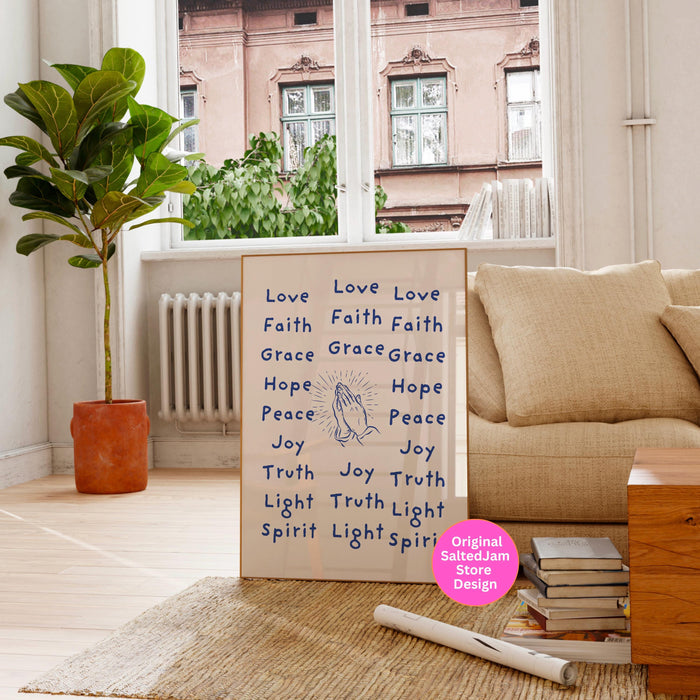 Love
Faith
Grace
Hope
Peace
Joy
Truth
Light
Spirit
Love
Faith
Grace
Joy
Truth
Light
Love
Faith
Grace
Hope
Peace
Joy
Truth
Light
Spiri
Original
SaltedJam
Store
Design